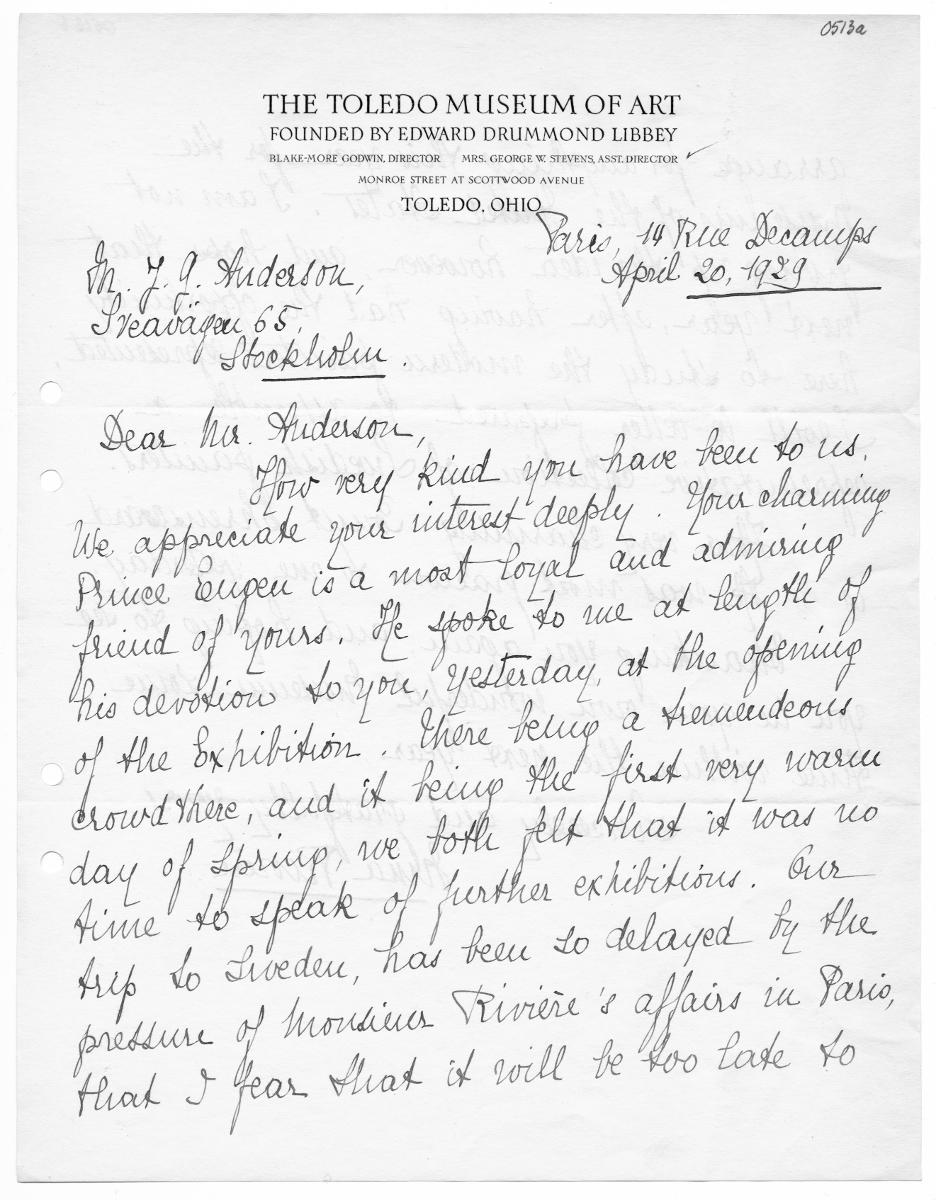 0513a
THE TOLEDO MUSEUM OF ART
FOUNDED BY EDWARD DRUMMOND LIBBEY
BLAKE-MORE GODWIN, DIRECTOR MRS. GEORGE W. STEVENS, ASST. DIRECTOR
MONROE STREET AT SCOTTWOOD AVENUE
TOLEDO, OHIO
Paris, 14 Rue Decamps
April 20, 1929
M. J. G. Anderson,
Sveavägen 65,
Stockholm.
Dear Mr. Anderson,
How very kind you have been to us.
We appreciate your interest deeply. Your charming
Prince Eugen is a most loyal and admiring
friend of yours. He spoke to me at length of
his devotion to you, yesterday, at the opening
of the Exhibition. There being a tremendeous
crowd there, and it being the first very warm
day of spring, we both felt that it was no
time to speak of further exhibitions. Our
trip to Sweden, has been so delayed by the
pressure of Monsieur Rivière's affairs in Paris,
that I fear that it will be too late to